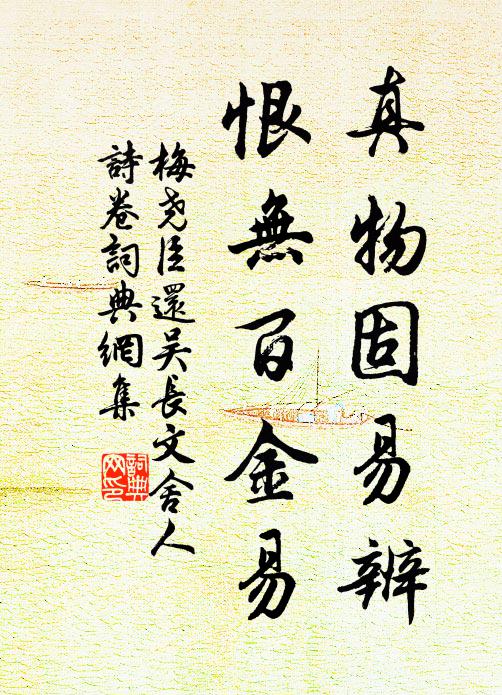 真物固易辨
恨無百金易
梅尭臣還吴長文舍人
詩卷詞典網集
詞典
网印